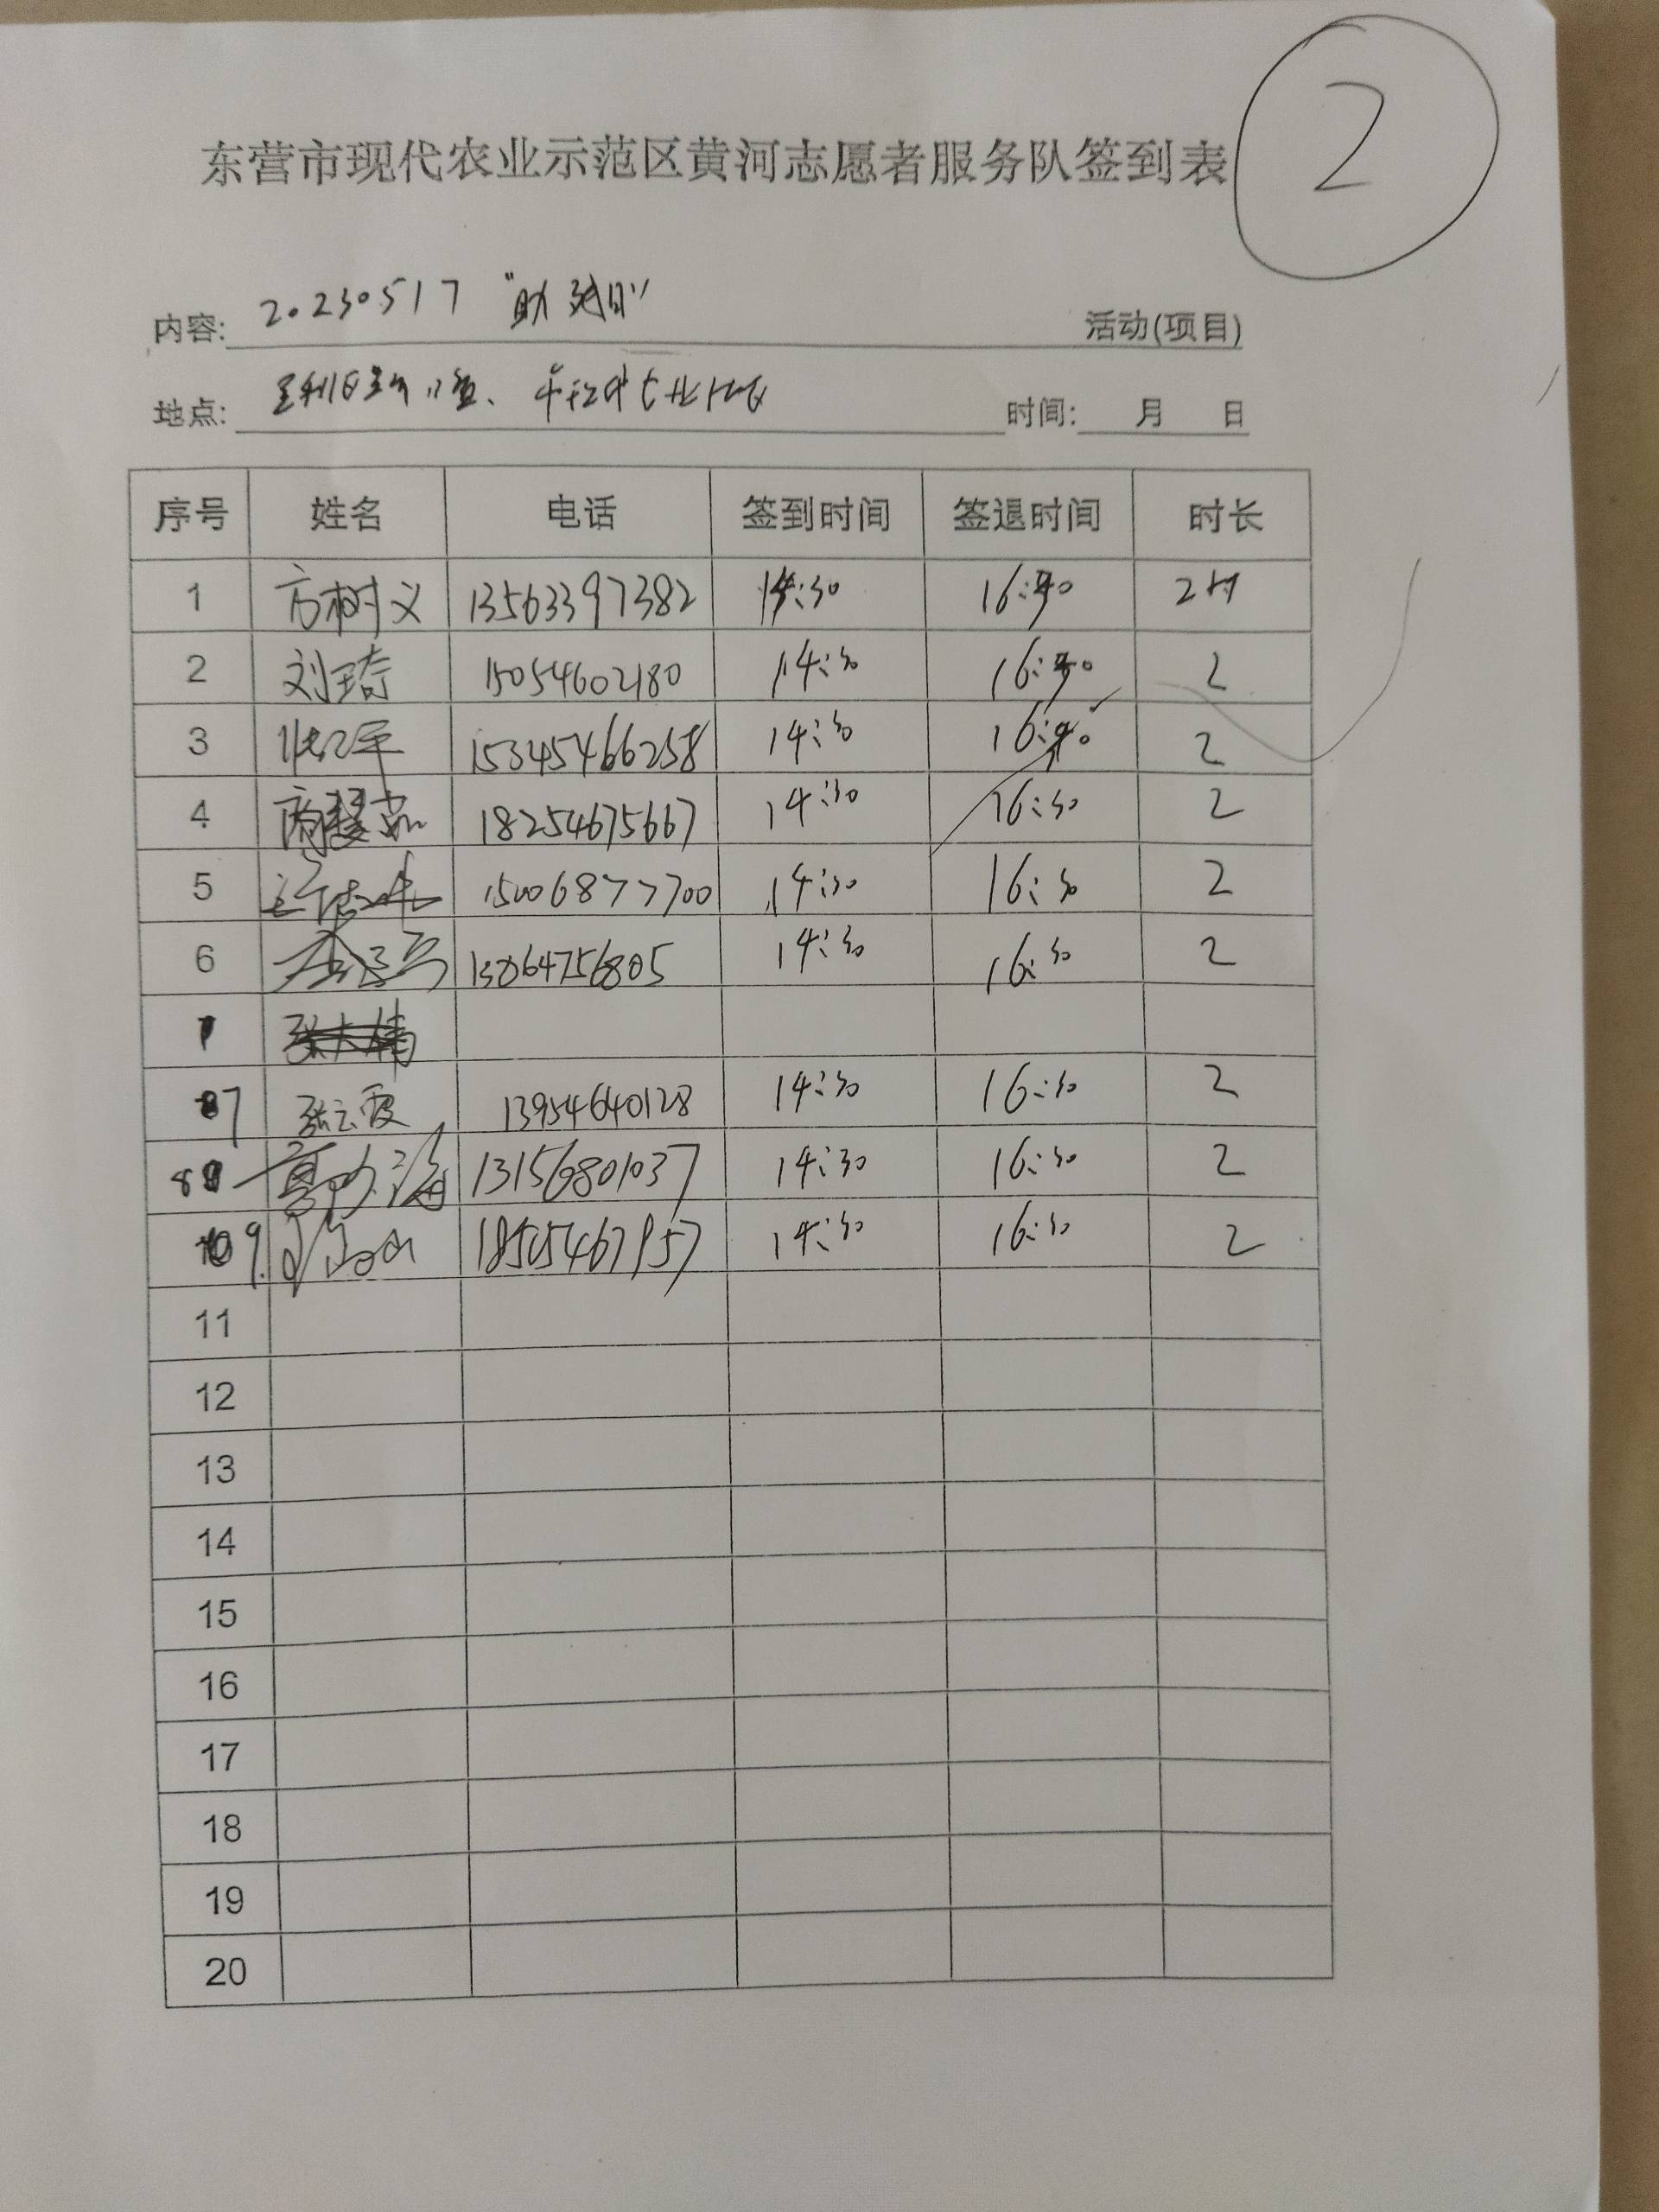 2
东营市现代农业示范区黄河志愿者服务队签到表
内容: 20230517 "助残日" 活动(项目)
地点: 时间: 月 日
序号 姓名 电话 签到时间 签退时间 时长
1 方树义 13563397382 14:30 16:30 2时
2 刘琦 15054602180 14:30 16:30 2
3 15345466258 14:30 16:30 2
4 18254675667 14:30 16:30 2
5 15006877700 14:30 16:30 2
6 13864756805 14:30 16:30 2
7 张云霞 13954640128 14:30 16:30 2
8 13156801037 14:30 16:30 2
9 14:30 16:30 2
11
12
13
14
15
16
17
18
19
20